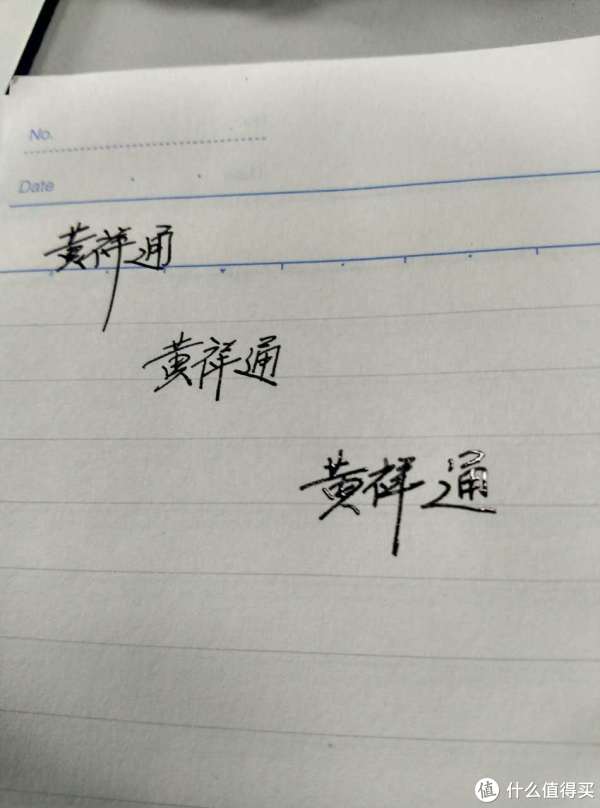 No.
Date
黄祥通
黄祥通
黄祥通
值 什么值得买